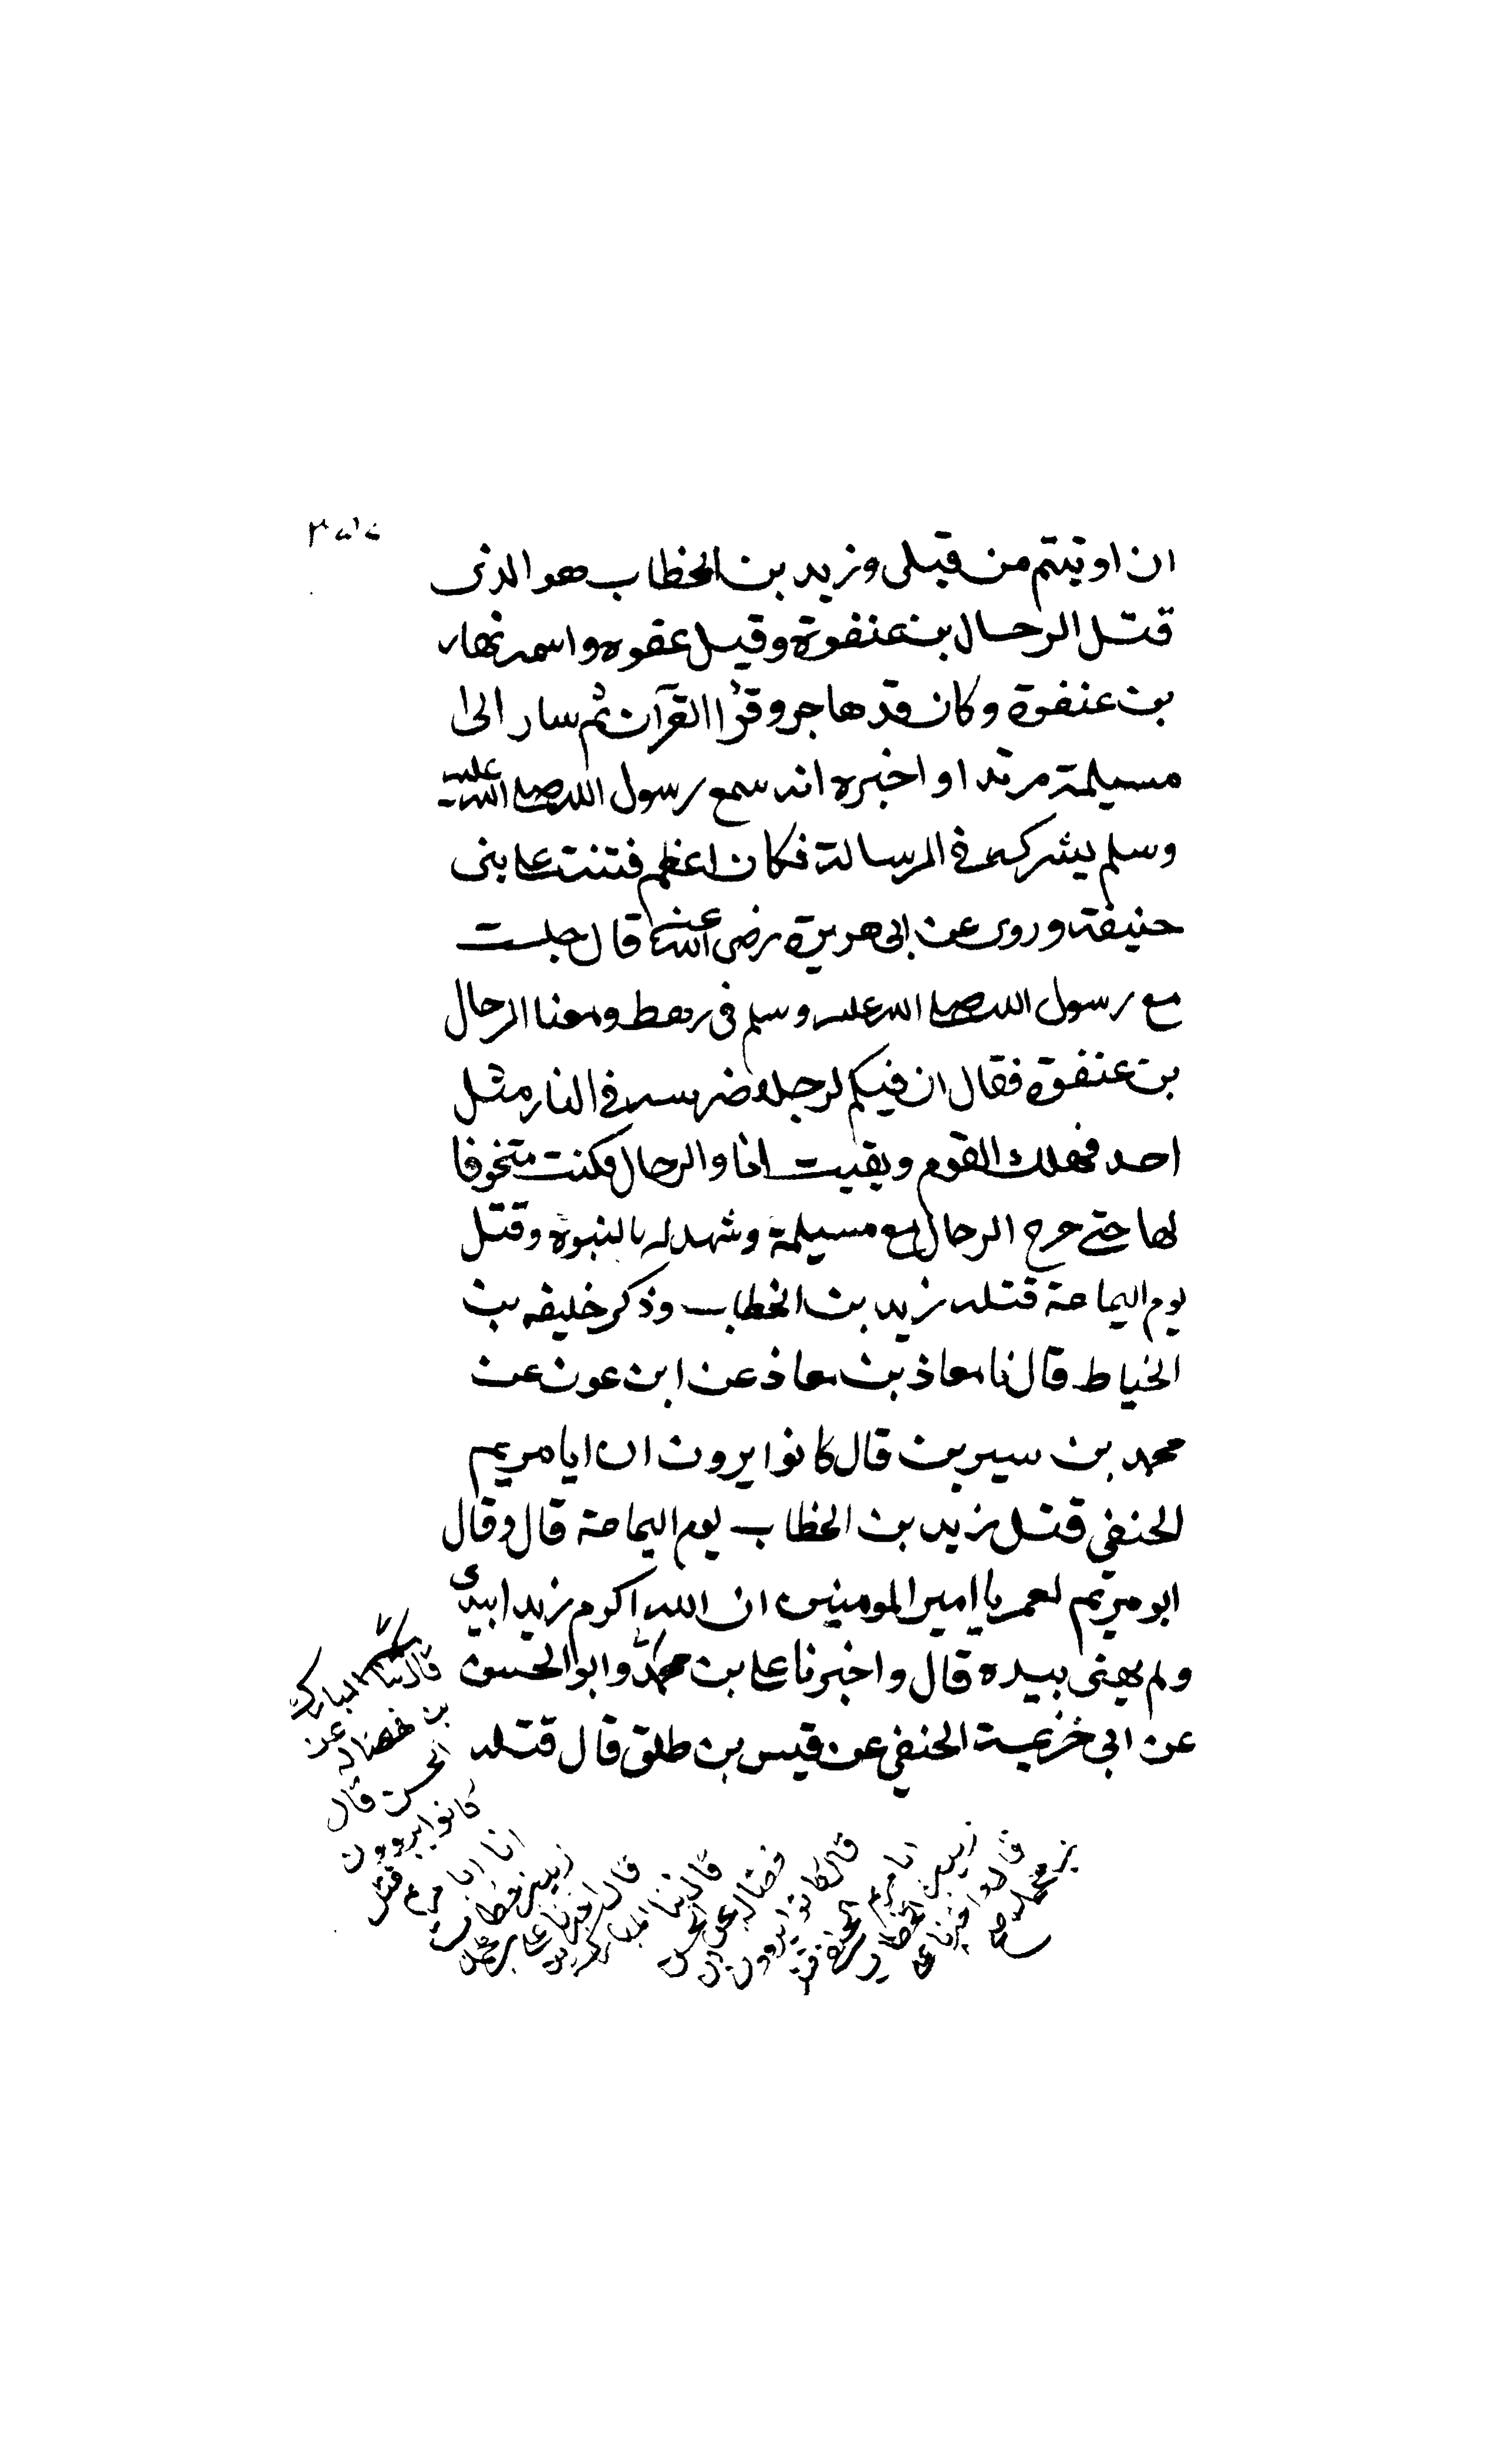 ان اوتيتم من قبلى وزيد بن الخطاب هو الذى
قتل الرحال بن عنفوة وقيل عفوه واسمه نهار
بن عنفوة وكان قد هاجر وقرا القرآن ثم سار الى
مسيلمة مرتدا واخبره انه سمع رسول الله صلى الله عليه
وسلم يشركه فى الرسالة فكان اعظم فتنة على بنى
حنيفة وروى عن ابى هريرة رضى الله عنه قال جلست
مع رسول الله صلى الله عليه وسلم فى رهط ومعنا الرحال
بن عنفوة فقال ان فيكم لرجلا ضرسه فى النار مثل
احد فهلك القوم وبقيت انا والرحال فكنت متخوفا
لها حتى خرج الرحال مع مسيلمة وشهد له بالنبوة وقتل
يوم اليمامة قتله زيد بن الخطاب وذكر خليفه بن
الخياط قال نا معاذ بن معاذ عن ابن عون عن
محمد بن سيرين قال كانوا يرون ان ابا مريم
الحنفي قتل زيد بن الخطاب يوم اليمامة قال وقال
ابو مريم لعمر يا امير المومنين ان الله اكرم زيدا بيدى
ولم يهنى بيده قال واخبرنا على بن محمد وابو الحسن
عن ابى خزيمة الحنفي عن قيس بن طلق قال قتله
قال ثنا المبارك
بن فضاله عن
الحسن قال
كانوا يرون
ان ابا مريم قتل
زيد بن خطاب
قال اخبرنا على بن محمد
قال ثنا المبارك بن
فضاله عن الحسن
قال كانوا يرون ان
ابا مريم الحنفي قتل
زيد بن الخطاب
قال واخبرنا على
بن محمد